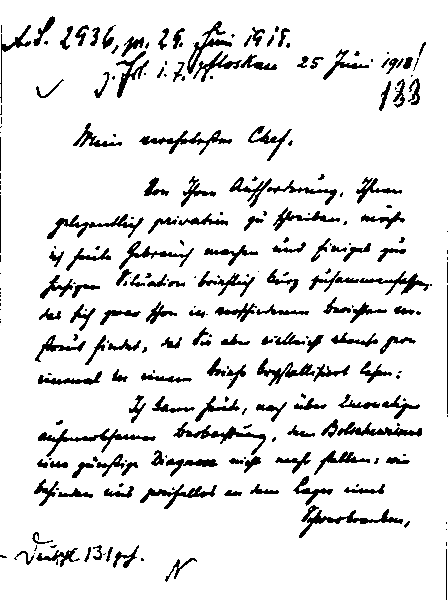 A.S. 2936, pr. 29. Juni 1918.
Moskau 25 Juni 1918
133
Mein verehrtester Chef,
Von Ihrer Aufforderung, Ihnen
gelegentlich privatim zu schreiben, möchte
ich heute Gebrauch machen und Einiges zur
hiesigen Situation brieflich kurz zusammenfassen,
das sich zwar schon in verschiedenen Berichten ver-
streut findet, das Sie aber vielleicht ebenso gern
einmal in einem Briefe krystallisiert lesen:
Ich kann heute, nach über 2 monatiger
aufmerksamer Beobachtung, dem Bolschewismus
eine günstige Diagnose nicht mehr stellen: wir
befinden uns zweifellos an dem Lager eines
Schwerkranken,
Deutschl. 131 geh.
N